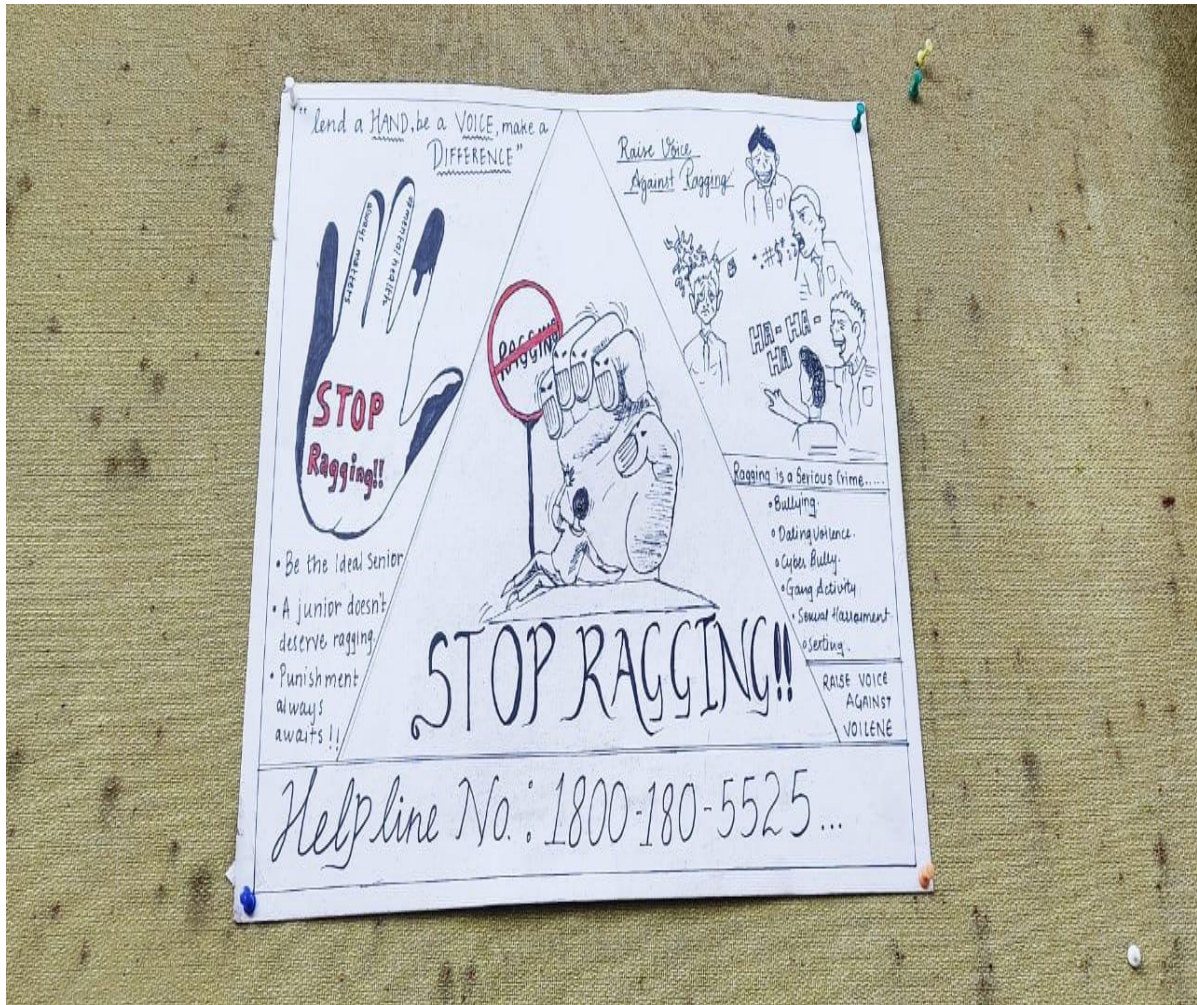 "lend a HAND, be a VOICE, make a
DIFFERENCE"
always matters
mental health
STOP
Ragging!!
• Be the Ideal Senior
• A junior doesn't
deserve ragging.
• Punishment
always
awaits !!
RAGGING
STOP RAGGING!!
Raise Voice
Against Ragging
HA-HA-
HA
Ragging is a Serious Crime.....
• Bullying.
• Dating Voilence.
• Cyber Bully.
• Gang Activity
• Sexual Harrasment
• Sexting.
RAISE VOICE
AGAINST
VOILENE
Helpline No.: 1800-180-5525...